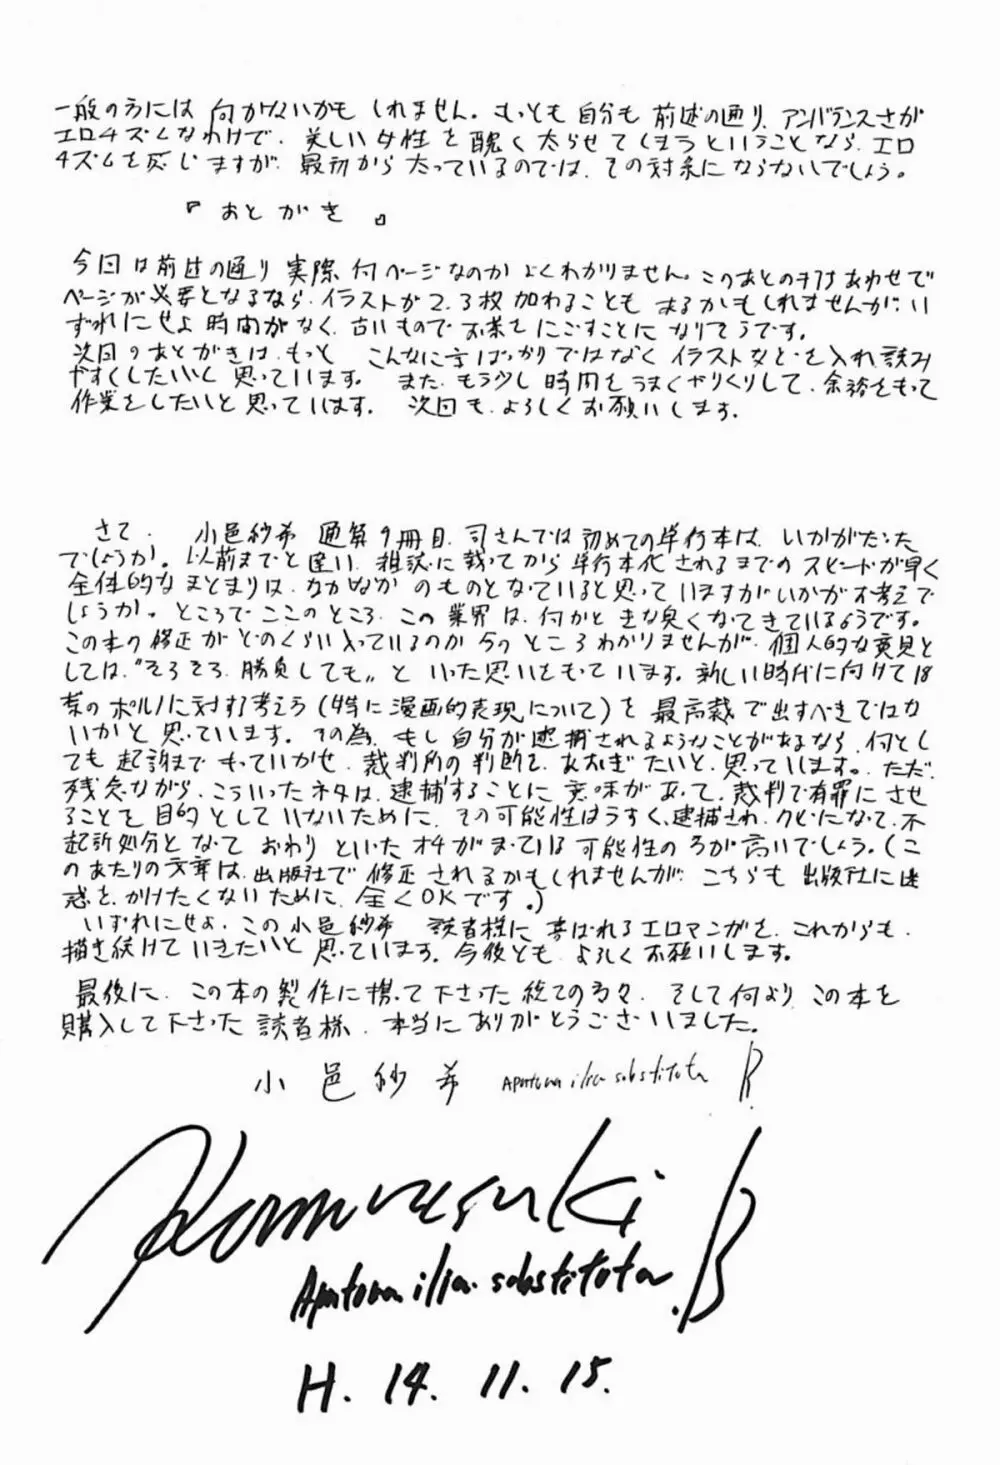 一般の方には 向かないかも しれません。もっとも 自分も 前述の通り、アンバランスさが
エロチズムなわけで、美しい女性を 醜く 太らせて しまうということなら、エロ
チズムを感じますが、最初から 太っているのでは、その対象にならないでしょう。
『 あとがき 』
今回は前述の通り 実際 何ページなのか よくわかりません。このあとの打ちあわせで
ページが必要となるなら、イラストが2、3枚 加わることも あるかもしれませんが、い
ずれにせよ 時間がなく、古いもので お茶をにごすことに なりそうです。
次回のあとがきは、もっと こんなに字ばっかりではなく イラストなどを入れ 読み
やすくしたいと 思っています。 また、もう少し 時間をうまくやりくりして、余裕をもって
作業をしたいと思っています。 次回も、よろしくお願いします。
さて、 小邑紗希 通算9冊目、司さんでは初めての単行本は、いかがだった
でしょうか。以前までと違い、雑誌に載ってから 単行本化されるまでの スピードが早く
全体的な まとまりは、なかなか のものとなっていると思っていますがいかがお考えで
しょうか。ところで ここのところ、この 業界は、何かと きな臭くなってきているようです。
この本の修正が どのくらい入っているのか 今の ところ わかりませんが、個人的な意見と
しては、“そろそろ、勝負しても〟と いった思いをもっています。新しい時代に向けて18
禁の ポルノに対する考えう(特に 漫画的表現について)を 最高裁で出すべきではな
いかと 思っています。その為、もし 自分が逮捕されるようなことがあるなら、何とし
ても 起訴まで もっていかせ、裁判所の判断を、あおぎたいと、思っています。ただ、
残念ながら、こういったネタは、逮捕することに 意味があって、裁判で有罪に させ
ることを 目的としていないために、その可能性はうすく、逮捕され、クビになって、不
起訴処分となって おわり といった オチがまっている 可能性のろが 高いでしょう。(こ
のあたりの文章は、出版社で 修正 されるかもしれませんが、こちらも 出版社に迷
惑を、かけたくないために、全くOKです。)
いずれにせよ、この 小邑紗希 読者様に 喜ばれるエロマンガを、これからも、
描き続けて いきたいと 思っています。今後とも、よろしくお願いします。
最後に、この本の製作に携って下さった 総ての方々、そして何より、この本を
購入して下さった 読者様、本当に ありがとうございました。
小邑紗希 Apatura ilia substituta R.
Komurasaki
Apatura ilia substituta. R
H. 14. 11. 15.